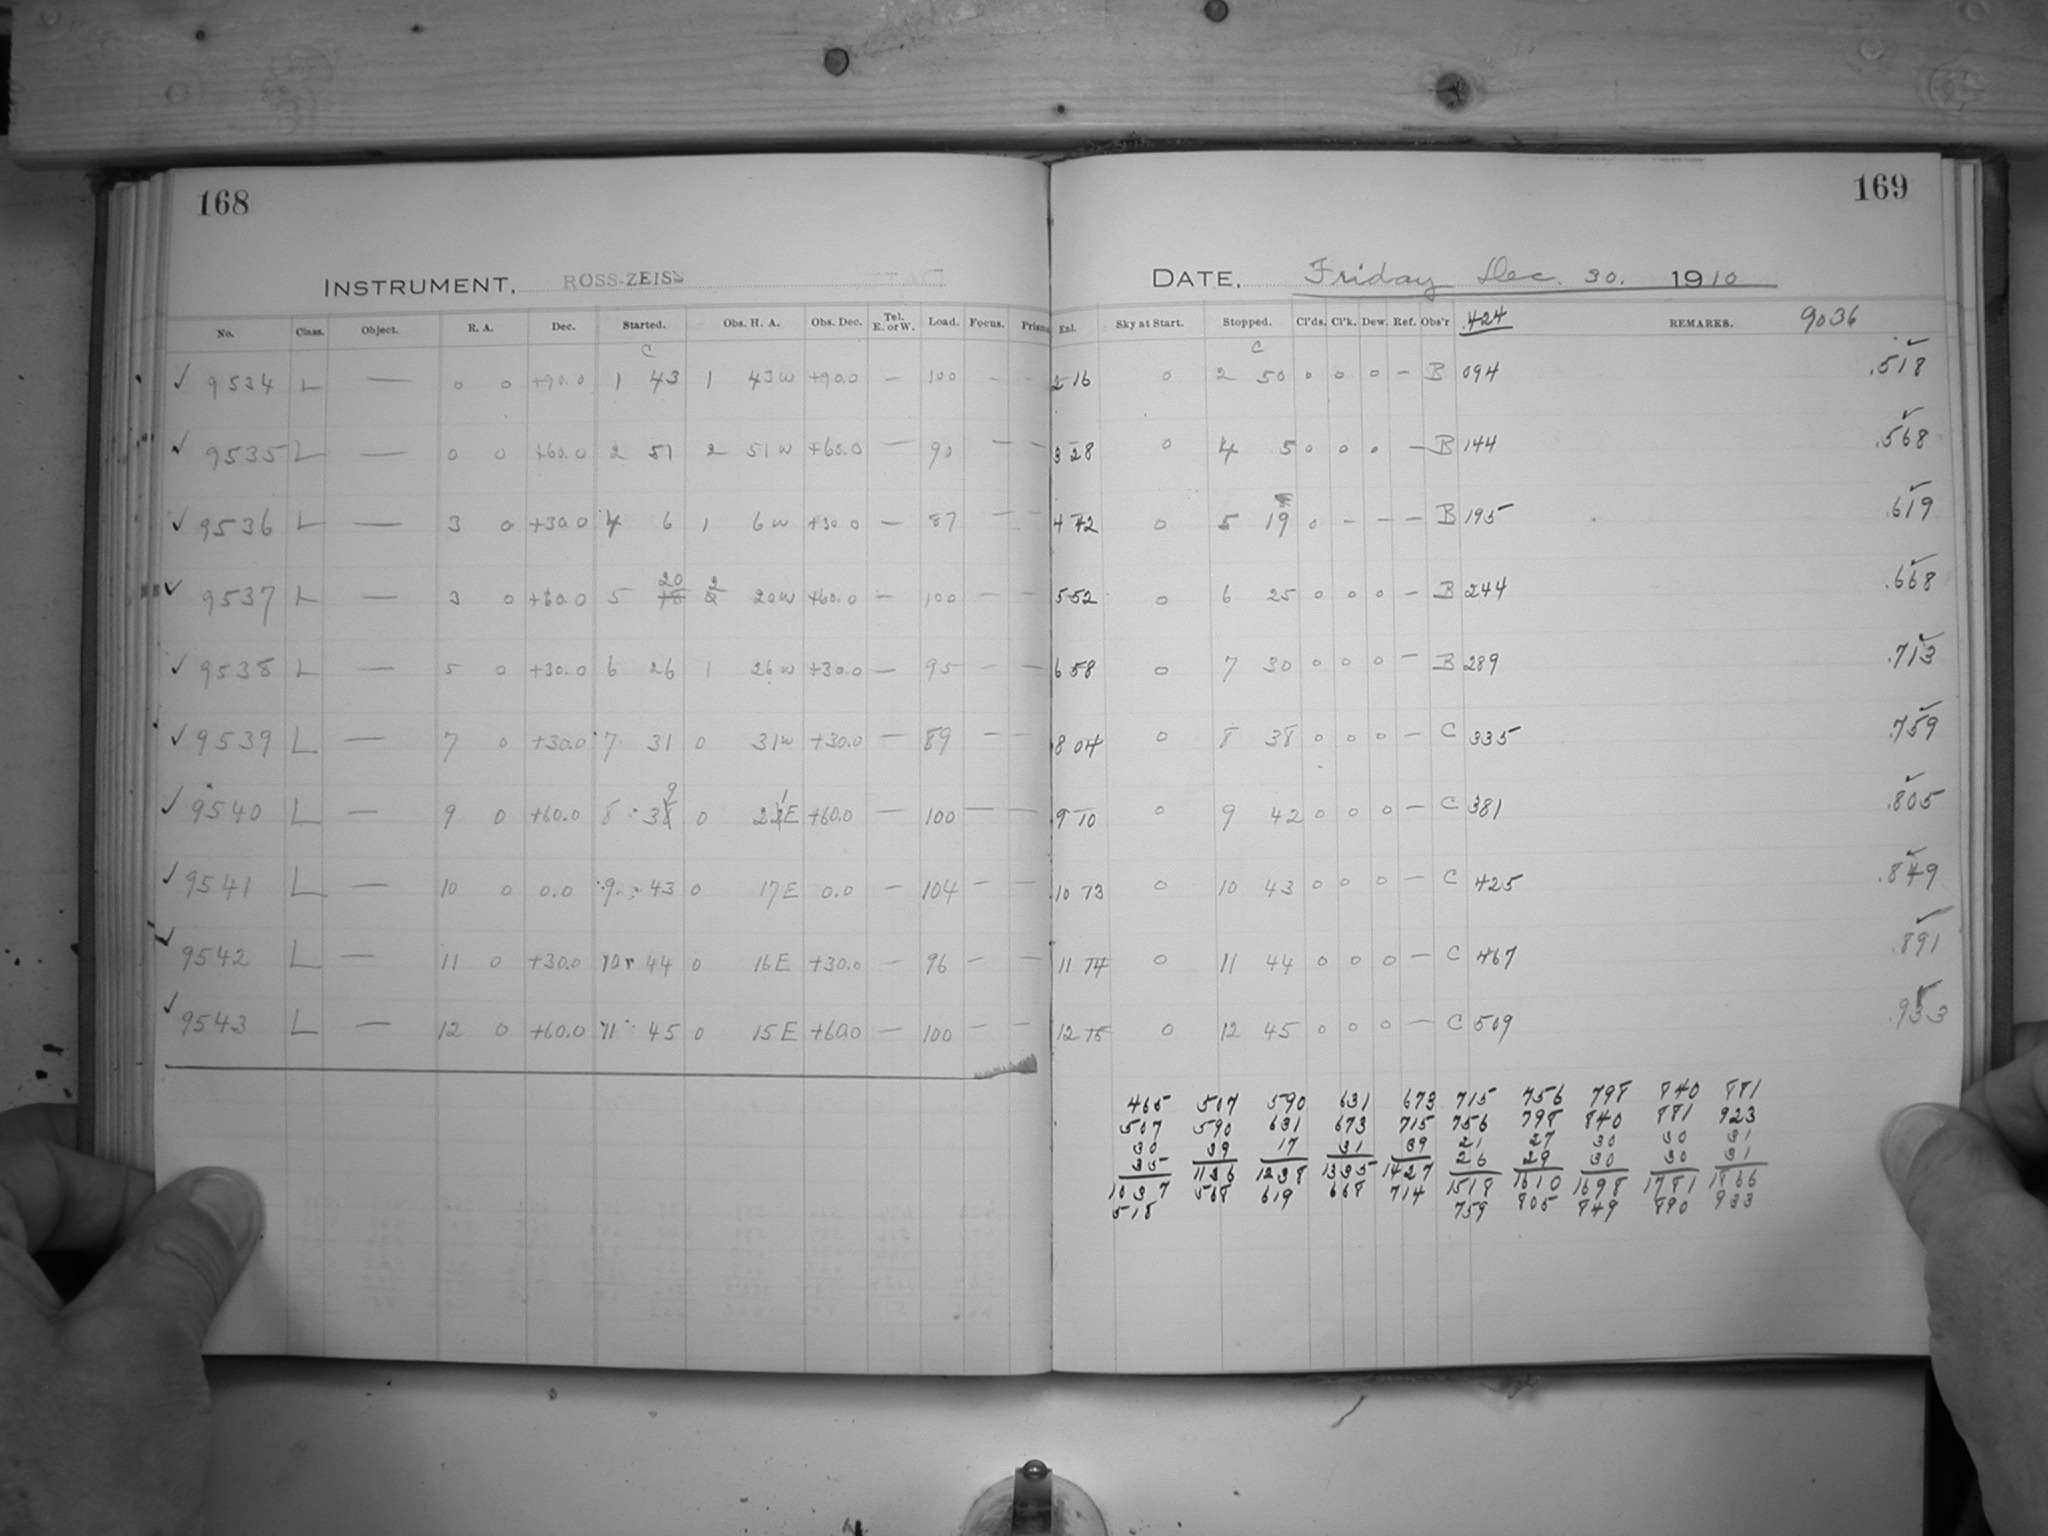 168
169
INSTRUMENT. ROSS-ZEISS
DATE. Friday Dec. 30. 1910
No. Class. Object. R. A. Dec. Started. Obs. H. A. Obs. Dec. Tel. E. or W. Load. Focus. Prism Enl. Sky at Start. Stopped. Cl'ds. Cl'k. Dew. Ref. Obs'r .424 REMARKS. 9036
C C
✓ 9534 L — 0 0 +90.0 1 43 1 43w +90.0 — 100 - - 2 16 0 2 50 0 0 0 — B 094 .518
✓ 9535 L — 0 0 +60.0 2 51 2 51w +60.0 — 90 — — 3 28 0 4 5 0 0 0 — B 144 .568
✓ 9536 L — 3 0 +30.0 4 6 1 6w +30.0 — 87 — — 4 42 0 5 19 0 - - — B 195 .619
20 2
✓ 9537 L — 3 0 +60.0 5 18 2 20w +60.0 — 100 — — 5 52 0 6 25 0 0 0 — B 244 .668
✓ 9538 L — 5 0 +30.0 6 26 1 26w +30.0 — 95 — — 6 58 0 7 30 0 0 0 — B 289 .713
✓ 9539 L — 7 0 +30.0 7 31 0 31w +30.0 — 89 — — 8 04 0 8 38 0 0 0 — C 335 .759
9 1
✓ 9540 L — 9 0 +60.0 8 38 0 22E +60.0 — 100 — — 9 10 0 9 42 0 0 0 — C 381 .805
✓ 9541 L — 10 0 0.0 9 43 0 17E 0.0 — 104 — — 10 13 0 10 43 0 0 0 — C 425 .849
✓ 9542 L — 11 0 +30.0 10 44 0 16E +30.0 — 96 — — 11 14 0 11 44 0 0 0 — C 467 .891
✓ 9543 L — 12 0 +60.0 11 45 0 15E +60.0 — 100 — — 12 15 0 12 45 0 0 0 — C 509 .933
465 507 590 631 673 715 756 798 840 881
507 590 631 673 715 756 798 840 881 923
30 39 17 31 39 21 27 30 30 31
35 1136 1238 1335 1427 26 29 30 30 31
1037 568 619 668 714 1518 1610 1698 1781 1866
518 759 805 849 890 933